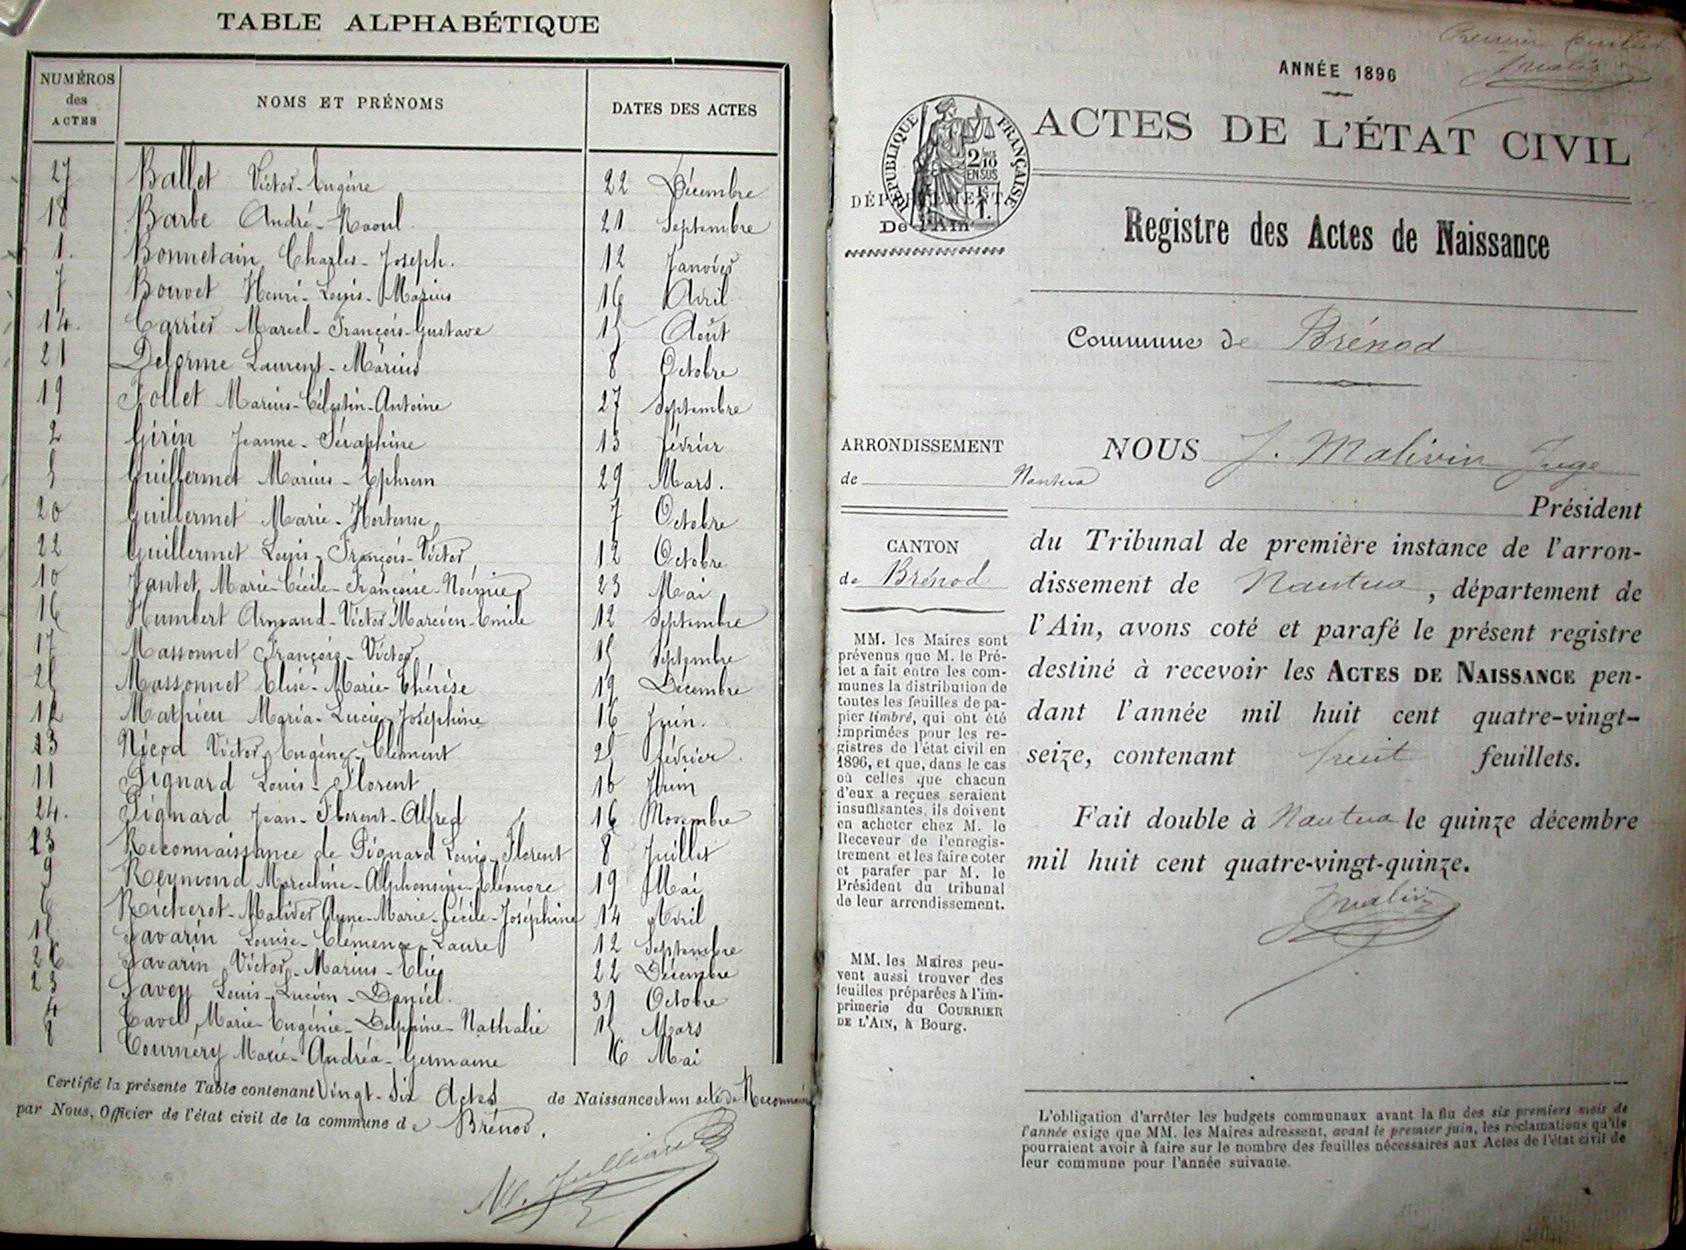 TABLE ALPHABÉTIQUE
NUMÉROS des ACTES
NOMS ET PRÉNOMS
DATES DES ACTES
27 Ballet Victor-Eugène 22 Décembre
18 Barbe André-Raoul 21 Septembre
1. Bonnetain Charles-Joseph. 12 Janvier
7 Bouvet Henri-Louis-Marius 16 Avril
14. Carrier Marcel-François-Gustave 15 Août
21 Delorme Laurent-Marius 8 Octobre
19 Follet Marius-Célestin-Antoine 27 Septembre
2 Girin Jeanne-Séraphine 13 Février
5 Guillermet Marius-Ephrem 29 Mars.
20 Guillermet Marie-Hortense 7 Octobre
22 Guillermet Louis-François-Victor 12 Octobre
10 Jantet Marie-Cécile-Françoise-Noémie 23 Mai
16 Humbert Armand-Victor Marcien-Emile 12 Septembre
17 Massonnet François-Victor 15 Septembre
25 Massonnet Elise-Marie-Thérèse 19 Décembre
12 Mathieu Maria-Lucie-Joséphine 16 Juin.
3 Nicod Victor-Eugène-Clément 25 Février.
11 Pignard Louis-Florent 16 Juin
24. Pignard Jean-Florent-Alfred 16 Novembre
13 Reconnaissance de Pignard Louis-Florent 8 Juillet
9 Reymond Marceline-Alphonsine-Eléonore 19 Mai
6 Richerot-Malivier Anne-Marie-Cécile-Joséphine 14 Avril
15 Savarin Louise-Clémence-Laure 12 Septembre
26 Savarin Victor-Marius-Elie 22 Décembre
23 Savey Louis-Lucien-Daniel. 31 Octobre
4 Tavel Marie-Eugénie-Delphine-Nathalie 15 Mars
8 Tournéry Marie-Andréa-Germaine 16 Mai
Certifié la présente Table contenant Vingt-Six Actes de Naissance et un acte de Reconnais
par Nous, Officier de l'état civil de la commune de Brénod.
M. Julliard
Premier feuillet
Malivin
ANNÉE 1896
ACTES DE L'ÉTAT CIVIL
RÉPUBLIQUE FRANÇAISE
2/10 EN SUS
1 F.
DÉPARTEMENT
De l'Ain
Registre des Actes de Naissance
Commune de Brénod
ARRONDISSEMENT
de Nantua
CANTON
de Brénod
MM. les Maires sont
prévenus que M. le Pré-
fet a fait entre les com-
munes la distribution de
toutes les feuilles de pa-
pier timbré, qui ont été
imprimées pour les re-
gistres de l'état civil en
1896, et que, dans le cas
où celles que chacun
d'eux a reçues seraient
insuffisantes, ils doivent
en acheter chez M. le
Receveur de l'enregis-
trement et les faire coter
et parafer par M. le
Président du tribunal
de leur arrondissement.
MM. les Maires peu-
vent aussi trouver des
feuilles préparées à l'im-
primerie du COURRIER
DE L'AIN, à Bourg.
NOUS J. Malivin Juge
Président
du Tribunal de première instance de l'arron-
dissement de Nantua, département de
l'Ain, avons coté et parafé le présent registre
destiné à recevoir les ACTES DE NAISSANCE pen-
dant l'année mil huit cent quatre-vingt-
seize, contenant huit feuillets.
Fait double à Nantua le quinze décembre
mil huit cent quatre-vingt-quinze.
Malivin
L'obligation d'arrêter les budgets communaux avant la fin des six premiers mois de
l'année exige que MM. les Maires adressent, avant le premier juin, les réclamations qu'ils
pourraient avoir à faire sur le nombre des feuilles nécessaires aux Actes de l'état civil de
leur commune pour l'année suivante.